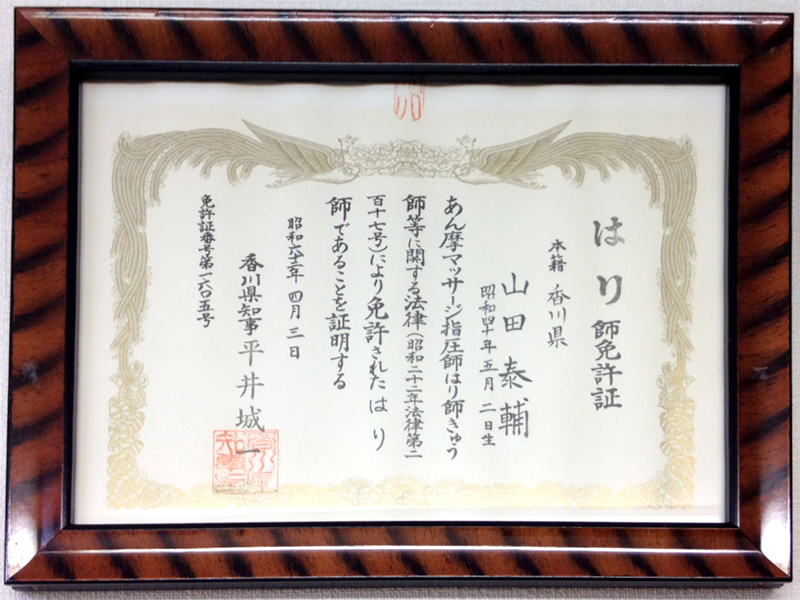 はり師免許証
本籍 香川県
山田泰輔
昭和四十年五月二日生
あん摩マッサージ指圧師はり師きゅう
師等に関する法律(昭和二十二年法律第二
百十七号)により免許されたはり
師であることを証明する
昭和六十三年四月三日
香川県知事 平井城一
免許証番号第一六〇五号